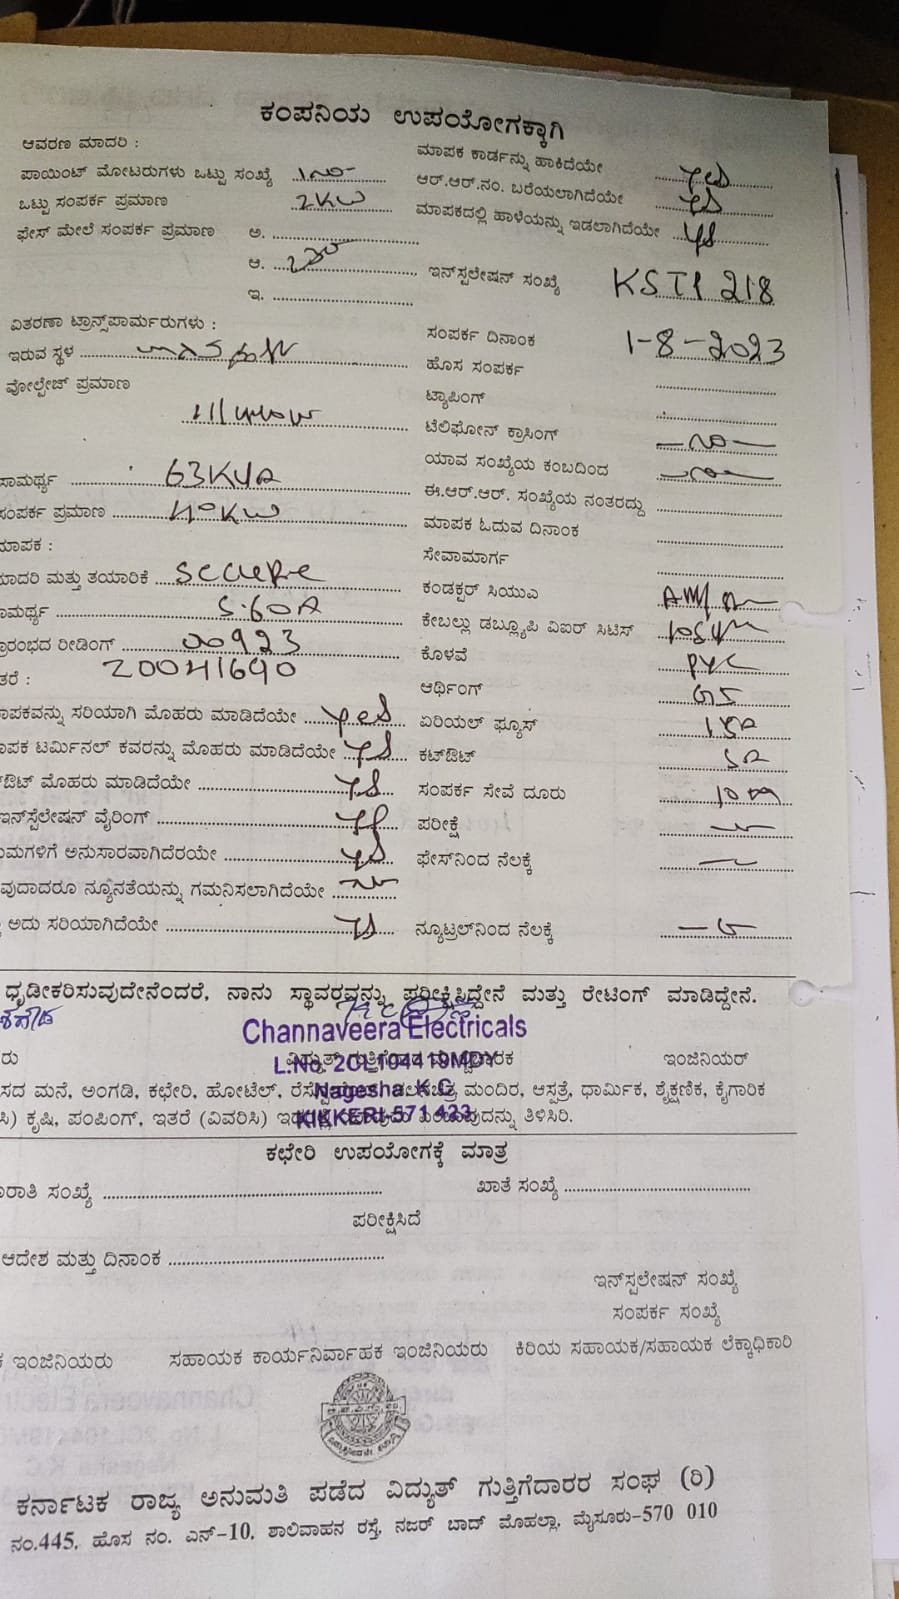 ಕಂಪನಿಯ ಉಪಯೋಗಕ್ಕಾಗಿ
ಆವರಣ ಮಾದರಿ :
ಮಾಪಕ ಕಾರ್ಡನ್ನು ಹಾಕಿದೆಯೇ yes
ಪಾಯಿಂಟ್ ಮೋಟರುಗಳು ಒಟ್ಟು ಸಂಖ್ಯೆ
ಆರ್.ಆರ್.ನಂ. ಬರೆಯಲಾಗಿದೆಯೇ yes
ಒಟ್ಟು ಸಂಪರ್ಕ ಪ್ರಮಾಣ 2KW
ಮಾಪಕದಲ್ಲಿ ಹಾಳೆಯನ್ನು ಇಡಲಾಗಿದೆಯೇ yes
ಫೇಸ್ ಮೇಲೆ ಸಂಪರ್ಕ ಪ್ರಮಾಣ ಅ.
ಆ.
ಇನ್‌ಸ್ಪಲೇಷನ್ ಸಂಖ್ಯೆ
ಇ.
ವಿತರಣಾ ಟ್ರಾನ್ಸ್‌ಪಾರ್ಮರುಗಳು :
ಸಂಪರ್ಕ ದಿನಾಂಕ 1-8-2023
ಇರುವ ಸ್ಥಳ
ಹೊಸ ಸಂಪರ್ಕ
ವೋಲ್ಟೇಜ್ ಪ್ರಮಾಣ
ಟ್ಯಾಪಿಂಗ್
ಟೆಲಿಫೋನ್ ಕ್ರಾಸಿಂಗ್
ಯಾವ ಸಂಖ್ಯೆಯ ಕಂಬದಿಂದ
ಸಾಮರ್ಥ್ಯ 63KVA
ಈ.ಆರ್.ಆರ್. ಸಂಖ್ಯೆಯ ನಂತರದ್ದು
ಸಂಪರ್ಕ ಪ್ರಮಾಣ 40KW
ಮಾಪಕ ಓದುವ ದಿನಾಂಕ
ಮಾಪಕ :
ಸೇವಾಮಾರ್ಗ
ಮಾದರಿ ಮತ್ತು ತಯಾರಿಕೆ secure
ಕಂಡಕ್ಟರ್ ಸಿಯುಎ
ಸಾಮರ್ಥ್ಯ 5-60A
ಕೇಬಲ್ಲು ಡಬ್ಲ್ಯೂಪಿ ವಿಐರ್ ಸಿಟಿಸ್
ಪ್ರಾರಂಭದ ರೀಡಿಂಗ್ 00923
ಕೊಳವೆ PVC
ಇತರೆ : 20041640
ಆರ್ಥಿಂಗ್ GI
ಮಾಪಕವನ್ನು ಸರಿಯಾಗಿ ಮೊಹರು ಮಾಡಿದೆಯೇ yes
ಏರಿಯಲ್ ಫ್ಯೂಸ್ 15A
ಮಾಪಕ ಟರ್ಮಿನಲ್ ಕವರನ್ನು ಮೊಹರು ಮಾಡಿದೆಯೇ yes
ಕಟ್‌ಔಟ್
ಕಟ್‌ಔಟ್ ಮೊಹರು ಮಾಡಿದೆಯೇ yes
ಸಂಪರ್ಕ ಸೇವೆ ದೂರು 10m
ಇನ್‌ಸ್ಪೆಲೇಷನ್ ವೈರಿಂಗ್ yes
ಪರೀಕ್ಷೆ
ನಿಯಮಗಳಿಗೆ ಅನುಸಾರವಾಗಿದೆರಯೇ yes
ಫೇಸ್‌ನಿಂದ ನೆಲಕ್ಕೆ
ಯಾವುದಾದರೂ ನ್ಯೂನತೆಯನ್ನು ಗಮನಿಸಲಾಗಿದೆಯೇ
ಅದು ಸರಿಯಾಗಿದೆಯೇ yes
ನ್ಯೂಟ್ರಲ್‌ನಿಂದ ನೆಲಕ್ಕೆ
ಧೃಡೀಕರಿಸುವುದೇನೆಂದರೆ, ನಾನು ಸ್ಥಾವರವನ್ನು ಪರೀಕ್ಷಿಸಿದ್ದೇನೆ ಮತ್ತು ರೇಟಿಂಗ್ ಮಾಡಿದ್ದೇನೆ.
Channaveera Electricals
L.No. 2CL104419MDY
Nagesha K.C
KIKKERI-571 423
ಇಂಜಿನಿಯರ್
ಮನೆ, ಅಂಗಡಿ, ಕಛೇರಿ, ಹೋಟೆಲ್, ಮಂದಿರ, ಆಸ್ಪತ್ರೆ, ಧಾರ್ಮಿಕ, ಶೈಕ್ಷಣಿಕ, ಕೈಗಾರಿಕ
ಕೃಷಿ, ಪಂಪಿಂಗ್, ಇತರೆ (ವಿವರಿಸಿ) ತಿಳಿಸಿರಿ.
ಕಛೇರಿ ಉಪಯೋಗಕ್ಕೆ ಮಾತ್ರ
ಸಂಖ್ಯೆ
ಖಾತೆ ಸಂಖ್ಯೆ
ಪರೀಕ್ಷಿಸಿದೆ
ಆದೇಶ ಮತ್ತು ದಿನಾಂಕ
ಇನ್‌ಸ್ಪಲೇಷನ್ ಸಂಖ್ಯೆ
ಸಂಪರ್ಕ ಸಂಖ್ಯೆ
ಇಂಜಿನಿಯರು ಸಹಾಯಕ ಕಾರ್ಯನಿರ್ವಾಹಕ ಇಂಜಿನಿಯರು ಕಿರಿಯ ಸಹಾಯಕ/ಸಹಾಯಕ ಲೆಕ್ಕಾಧಿಕಾರಿ
ಕರ್ನಾಟಕ ರಾಜ್ಯ ಅನುಮತಿ ಪಡೆದ ವಿದ್ಯುತ್ ಗುತ್ತಿಗೆದಾರರ ಸಂಘ (ರಿ)
ನಂ.445, ಹೊಸ ನಂ. ಎನ್-10, ಶಾಲಿವಾಹನ ರಸ್ತೆ, ನಜರ್ ಬಾದ್ ಮೊಹಲ್ಲಾ, ಮೈಸೂರು-570 010